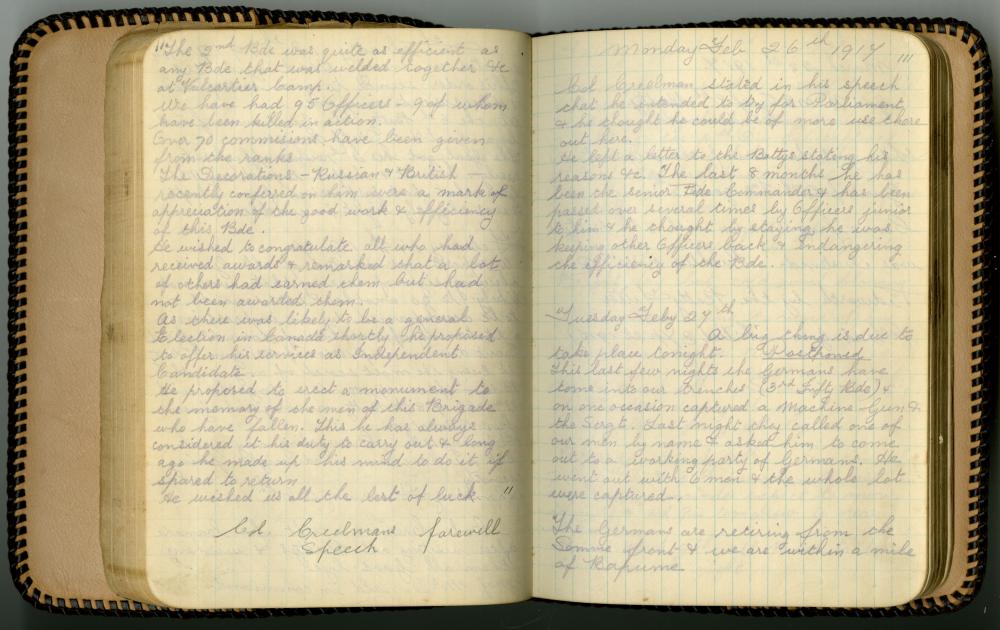 "The 2nd Bde was quite as efficient as
any Bde that was welded together &c
at Valcartier Camp.
We have had 95 Officers - 9 of whom
have been killed in action.
Over 70 commisions have been given
from the ranks
The Decorations - Russian & British -
recently conferred on him were a mark of
appreciation of the good work & efficiency
of this Bde.
He wished to congratulate all who had
received awards & remarked that a lot
of others had earned them but had
not been awarded them.
As there was likely to be a general
Election in Canada shortly he proposed
to offer his services as Independent
Candidate.
He proposed to erect a monument to
the memory of the men of this Brigade
who have fallen. This he has always
considered it his duty to carry out & long
ago he made up his mind to do it if
spared to return
He wished us all the best of luck "
Col. Creelmans farewell
Speech
Monday Feb 26th 1917
Col Creelman stated in his speech
that he intended to try for Parliament,
& he thought he could be of more use there
out here.
He left a letter to the Battys stating his
reasons &c. The last 8 months he has
been the senior Bde Commander & has been
passed over several times by Officers junior
to him & he thought by staying he was
keeping other Officers back & Endangering
the efficiency of the Bde.
Tuesday Feby 27th
A big thing is due to
take place tonight. Postponed
This last few nights the Germans have
come into our trenches (3rd Infty Bde) &
on one occasion captured a Machine Gun &
the Sergt. Last night they called one of
our men by name & asked him to come
out to a working party of Germans. He
went out with 6 men & the whole lot
were captured.
The Germans are retiring from the
Somme front & we are within a mile
of Bapume